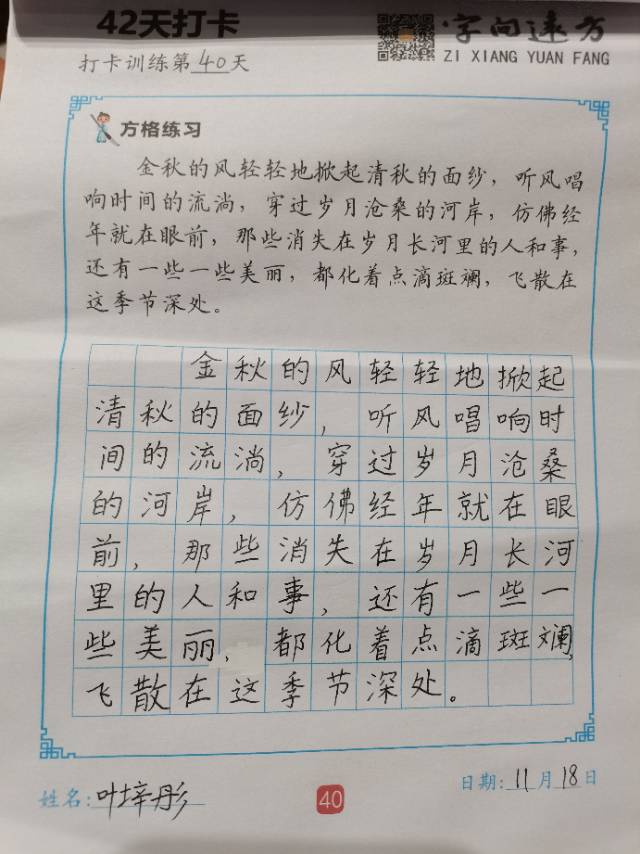 42天打卡
字向远方
打卡训练第40天
ZI XIANG YUAN FANG
方格练习
金秋的风轻轻地掀起清秋的面纱，听风唱
响时间的流淌，穿过岁月沧桑的河岸，仿佛经
年就在眼前，那些消失在岁月长河里的人和事，
还有一些一些美丽，都化着点滴斑斓，飞散在
这季节深处。
金秋的风轻轻地掀起
清秋的面纱，听风唱响时
间的流淌，穿过岁月沧桑
的河岸，仿佛经年就在眼
前，那些消失在岁月长河
里的人和事，还有一些一
些美丽，都化着点滴斑斓，
飞散在这季节深处。
姓名：叶梓彤
40
日期：11月18日